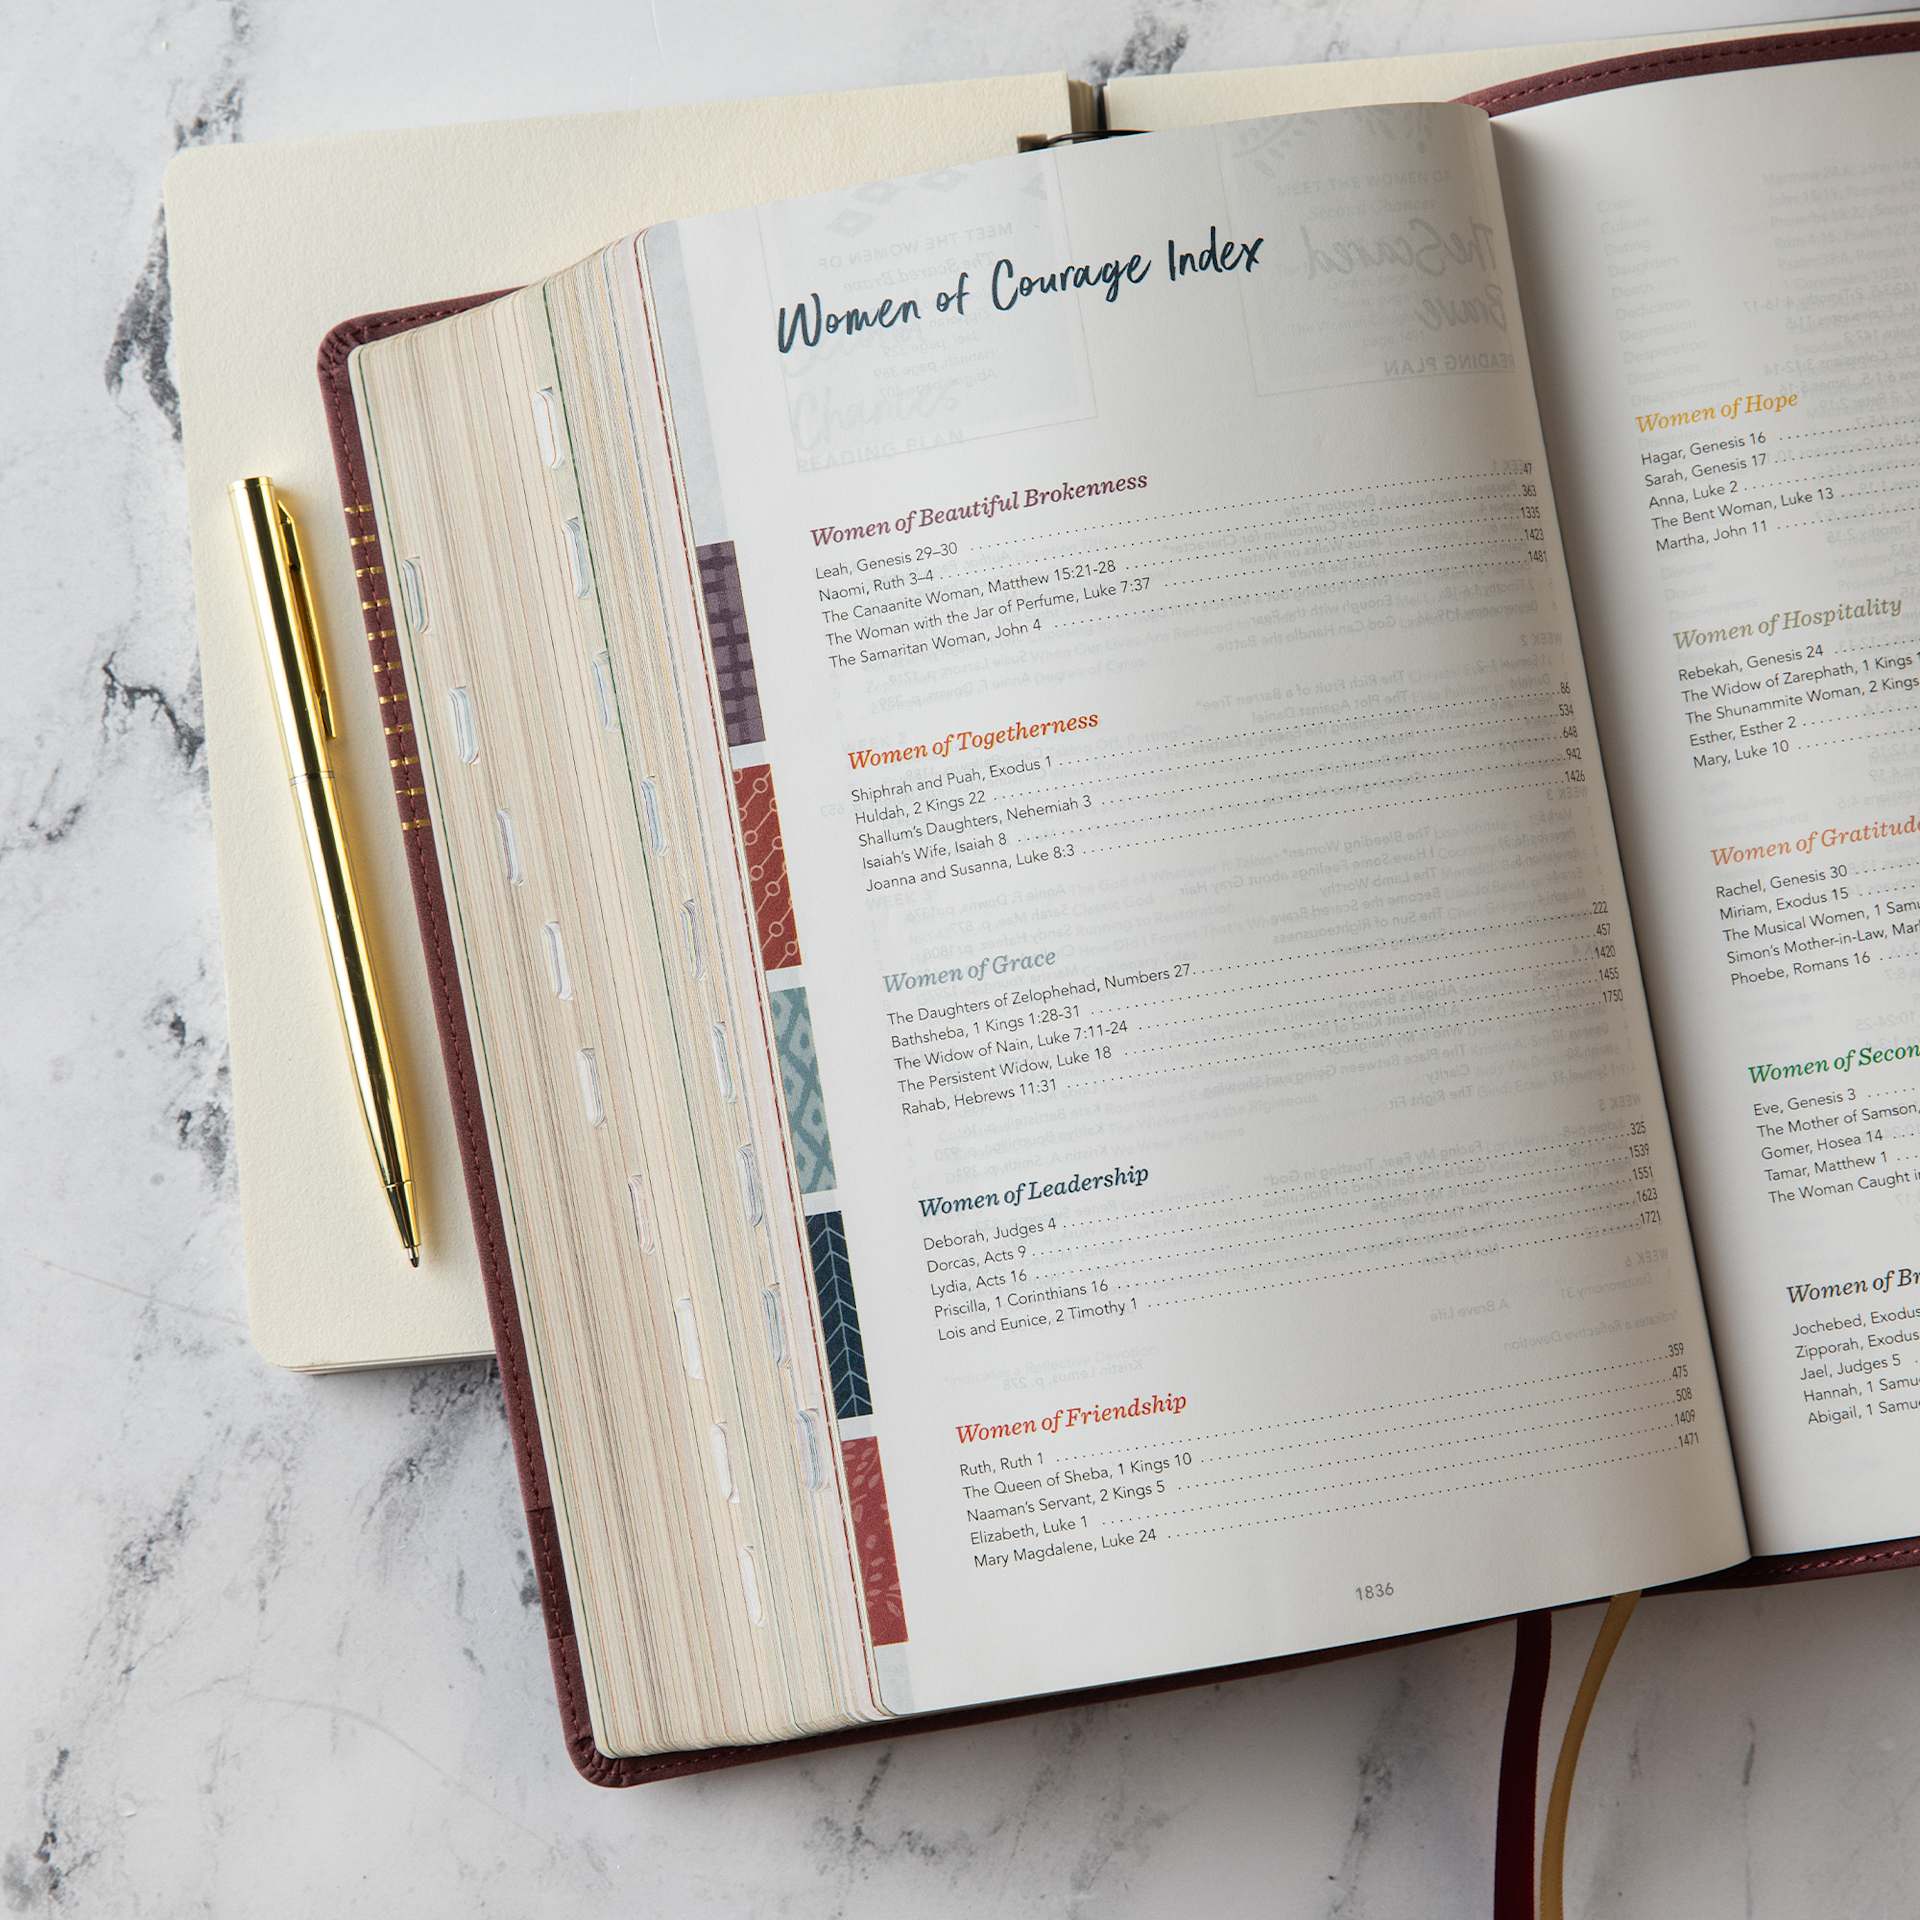 Women of Courage Index
Women of Beautiful Brokenness
Leah, Genesis 29–30 ........ 47
Naomi, Ruth 3–4 ........ 363
The Canaanite Woman, Matthew 15:21-28 ........ 1335
The Woman with the Jar of Perfume, Luke 7:37 ........ 1423
The Samaritan Woman, John 4 ........ 1481
Women of Togetherness
Shiphrah and Puah, Exodus 1 ........ 86
Huldah, 2 Kings 22 ........ 534
Shallum's Daughters, Nehemiah 3 ........ 648
Isaiah's Wife, Isaiah 8 ........ 942
Joanna and Susanna, Luke 8:3 ........ 1426
Women of Grace
The Daughters of Zelophehad, Numbers 27 ........ 222
Bathsheba, 1 Kings 1:28-31 ........ 457
The Widow of Nain, Luke 7:11-24 ........ 1420
The Persistent Widow, Luke 18 ........ 1455
Rahab, Hebrews 11:31 ........ 1750
Women of Leadership
Deborah, Judges 4 ........ 325
Dorcas, Acts 9 ........ 1539
Lydia, Acts 16 ........ 1551
Priscilla, 1 Corinthians 16 ........ 1623
Lois and Eunice, 2 Timothy 1 ........ 1721
Women of Friendship
Ruth, Ruth 1 ........ 359
The Queen of Sheba, 1 Kings 10 ........ 475
Naaman's Servant, 2 Kings 5 ........ 508
Elizabeth, Luke 1 ........ 1409
Mary Magdalene, Luke 24 ........ 1471
1836
Women of Hope
Hagar, Genesis 16
Sarah, Genesis 17
Anna, Luke 2
The Bent Woman, Luke 13
Martha, John 11
Women of Hospitality
Rebekah, Genesis 24
The Widow of Zarephath, 1 Kings
The Shunammite Woman, 2 Kings
Esther, Esther 2
Mary, Luke 10
Women of Gratitud
Rachel, Genesis 30
Miriam, Exodus 15
The Musical Women, 1 Samu
Simon's Mother-in-Law, Mar
Phoebe, Romans 16
Women of Secon
Eve, Genesis 3
The Mother of Samson,
Gomer, Hosea 14
Tamar, Matthew 1
The Woman Caught i
Women of Br
Jochebed, Exodus
Zipporah, Exodus
Jael, Judges 5
Hannah, 1 Samu
Abigail, 1 Samu